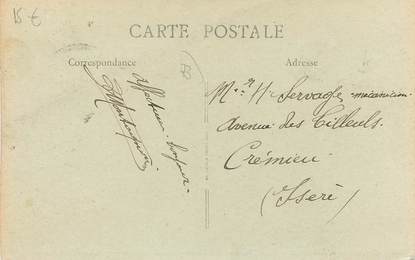 15 €
CARTE POSTALE
Correspondance
Adresse
Affectueux bonjour
Mr H Servage mécanicien
Avenue des Tilleuls.
Crémieu
(Isère)